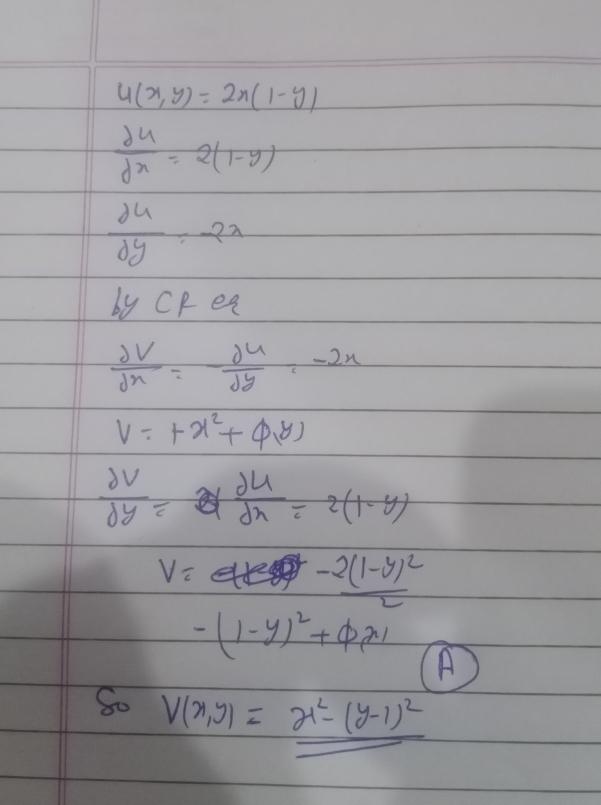 u(x,y) = 2x(1-y)
∂u/∂x = 2(1-y)
∂u/∂y = -2x
by CR eq
∂V/∂x = -∂u/∂y = -2x
V = +x² + φ(y)
∂V/∂y = ∂u/∂x = 2(1-y)
V = -2(1-y)²/2
-(1-y)² + φ(x)
A
So V(x,y) = x² - (y-1)²